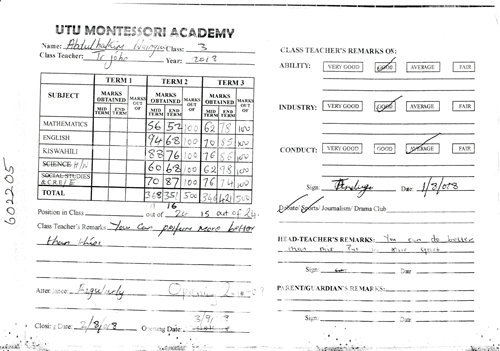 UTU MONTESSORI ACADEMY
Name: Abdulhakim Class: 3
Class Teacher: Tr john Year: 2018
TERM 1 TERM 2 TERM 3
SUBJECT MARKS OBTAINED MARKS OUT OF MARKS OBTAINED MARKS OUT OF MARKS OBTAINED MARKS OUT OF
MID TERM END TERM MID TERM END TERM MID TERM END TERM
MATHEMATICS 56 52 100 62 78 100
ENGLISH 94 68 100 70 85 100
KISWAHILI 88 76 100 76 86 100
SCIENCE H/N 60 68 100 62 98 100
SOCIAL STUDIES & C.R.E/I.R.E 70 87 100 76 74 100
TOTAL 368 351 500 346 421 500
Position in Class 11 16 out of 24 15 out of 24
Class Teacher's Remarks You can perform more better
than this
Attendance Regularly Opening
Closing Date 2/8/018 Opening Date 3/9/
602205
CLASS TEACHER'S REMARKS ON:
ABILITY: VERY GOOD GOOD AVERAGE FAIR
INDUSTRY: VERY GOOD GOOD AVERAGE FAIR
CONDUCT: VERY GOOD GOOD AVERAGE FAIR
Sign: Date: 1/8/018
Debate/Sports/Journalism/Drama Club
HEAD-TEACHER'S REMARKS: You can do better
Sign: Date
PARENT/GUARDIAN'S REMARKS:
Sign: Date